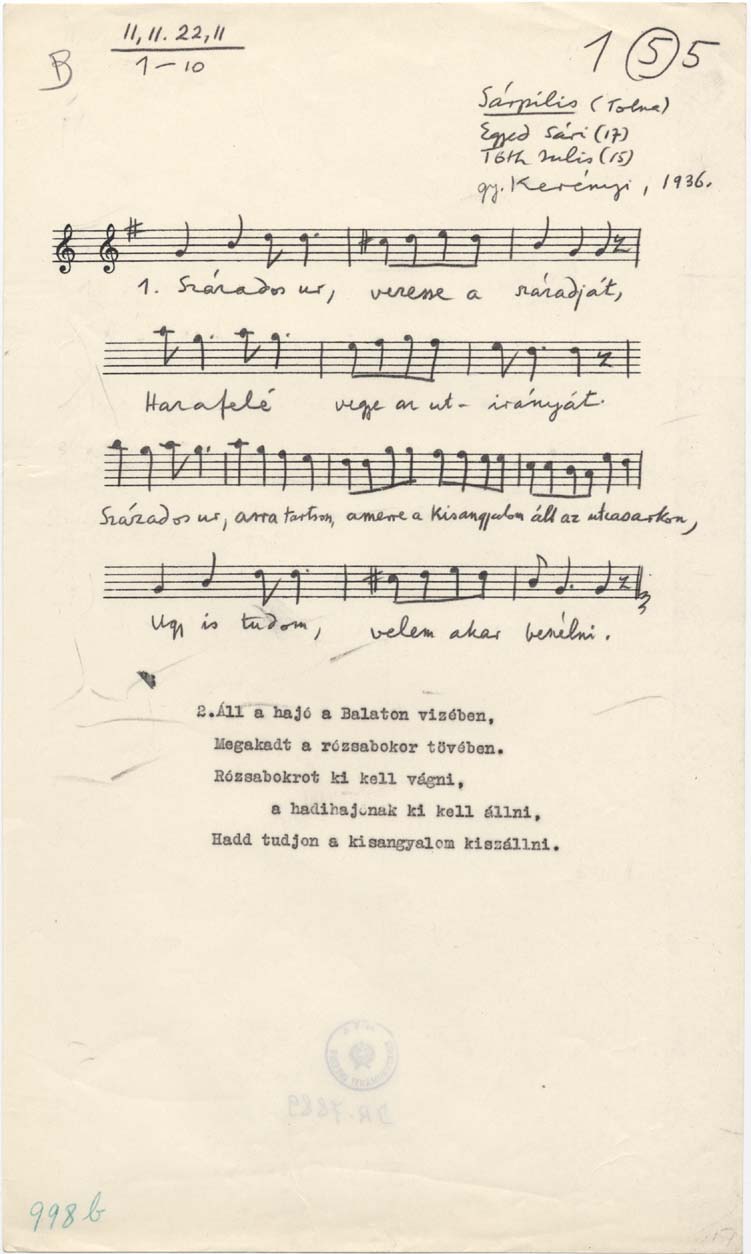 11, 11. 22, 11
1-10
B
1 5 5
Sárpilis (Tolna)
Egyed Sári (17)
Tóth Julis (15)
gy. Kerényi, 1936.
1. Százados ur, vezesse a századját,
Hazafelé vegye az ut- irányát.
Százados ur, arra tartson, amerre a Kisangyalom áll az utcasarkon,
Ugy is tudom, velem akar beszélni.
2. Áll a hajó a Balaton vizében,
Megakadt a rózsabokor tövében.
Rózsabokrot ki kell vágni,
a hadihajónak ki kell állni,
Hadd tudjon a kisangyalom kiszállni.
DR. 7889
998 b